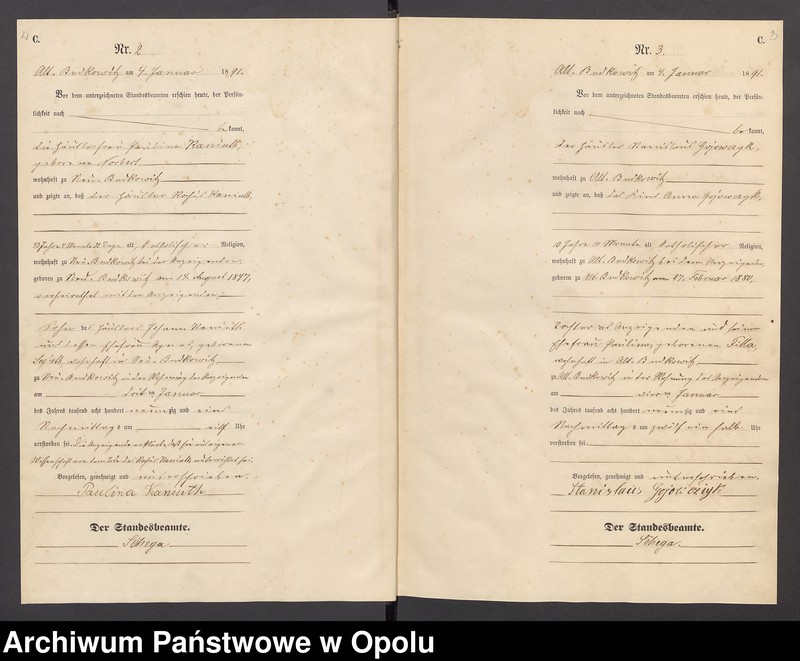 C.
Nr. 2
Alt-Budkowitz am 4. Januar 1891.
Vor dem unterzeichneten Standesbeamten erschien heute, der Persön-
lichkeit nach
bekannt,
die Häuslerfrau Paulina Kaniuth,
geborene
wohnhaft zu Neu-Budkowitz
und zeigte an, daß der Häusler Kaniuth,
alt, katholischer Religion,
wohnhaft zu Neu-Budkowitz bei der Anzeigenden,
geboren zu Neu-Budkowitz am 14. August
verheirathet mit der Anzeigenden,
Sohn des Häuslers Johann Kaniuth
und dessen Ehefrau Agnes, geborenen
wohnhaft in Neu-Budkowitz
zu Neu-Budkowitz in der Wohnung der Anzeigenden
am Januar
des Jahres tausend acht hundert neunzig und eins
Nachmittags um Uhr
verstorben sei. Die Anzeigende erklärte, daß sie aus eigener
Wissenschaft von dem Tode des Kaniuth unterrichtet sei.
Vorgelesen, genehmigt und unterschrieben.
Paulina Kaniuth
Der Standesbeamte.
Sthega
C. 3
Nr. 3.
Alt-Budkowitz am 4. Januar 1891.
Vor dem unterzeichneten Standesbeamten erschien heute, der Persön-
lichkeit nach
bekannt,
der Häusler Stanislaus Gojowczyk,
wohnhaft zu Alt-Budkowitz
und zeigte an, daß das Kind Anna Gojowczyk,
10 Jahre 10 Monate alt, katholischer Religion,
wohnhaft zu Alt-Budkowitz bei dem Anzeigenden,
geboren zu Alt-Budkowitz am 27. Februar 1880,
Tochter des Anzeigenden und seiner
Ehefrau Paulina, geborenen
wohnhaft in Alt-Budkowitz
zu Alt-Budkowitz in der Wohnung des Anzeigenden
am vier Januar
des Jahres tausend acht hundert neunzig und eins
Nachmittags um zwölf ein halb Uhr
verstorben sei.
Vorgelesen, genehmigt und unterschrieben.
Stanislaus
Der Standesbeamte.
Sthega.
Archiwum Państwowe w Opolu